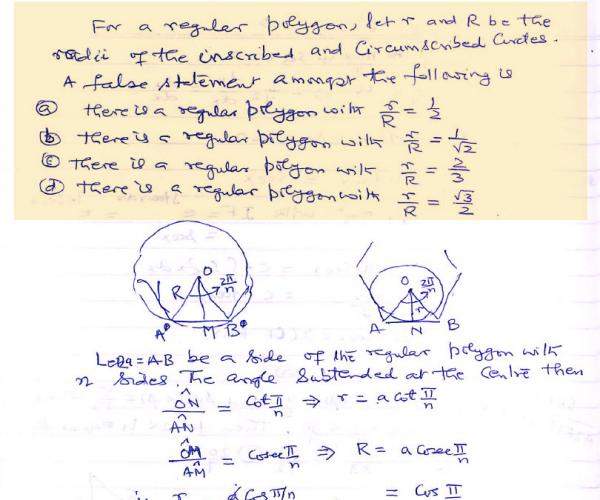 For a regular polygon, let r and R be the
radii of the inscribed and Circumscribed Circles.
A false statement amongst the following is
(a) there is a regular polygon with r/R = 1/2
(b) there is a regular polygon with r/R = 1/√2
(c) there is a regular polygon with r/R = 2/3
(d) there is a regular polygon with r/R = √3/2
O
R
2π/n
A
M
B
O
2π/n
r
A
N
B
Let 2a = AB be a side of the regular polygon with
n sides. The angle subtended at the centre then
ON/AN = cot π/n ⇒ r = a cot π/n
OA/AM = cosec π/n ⇒ R = a cosec π/n
cos π/n = cos π